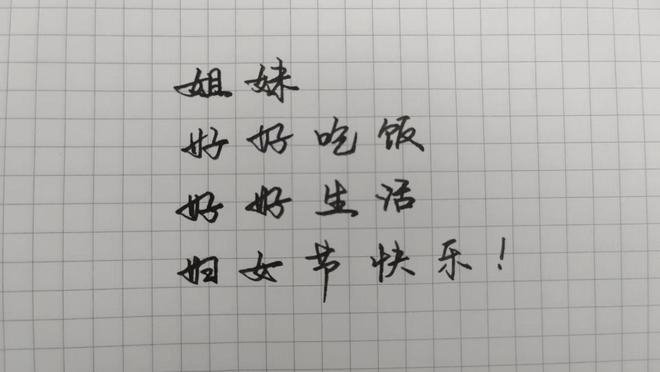 姐妹
好好吃饭
好好生活
妇女节快乐!